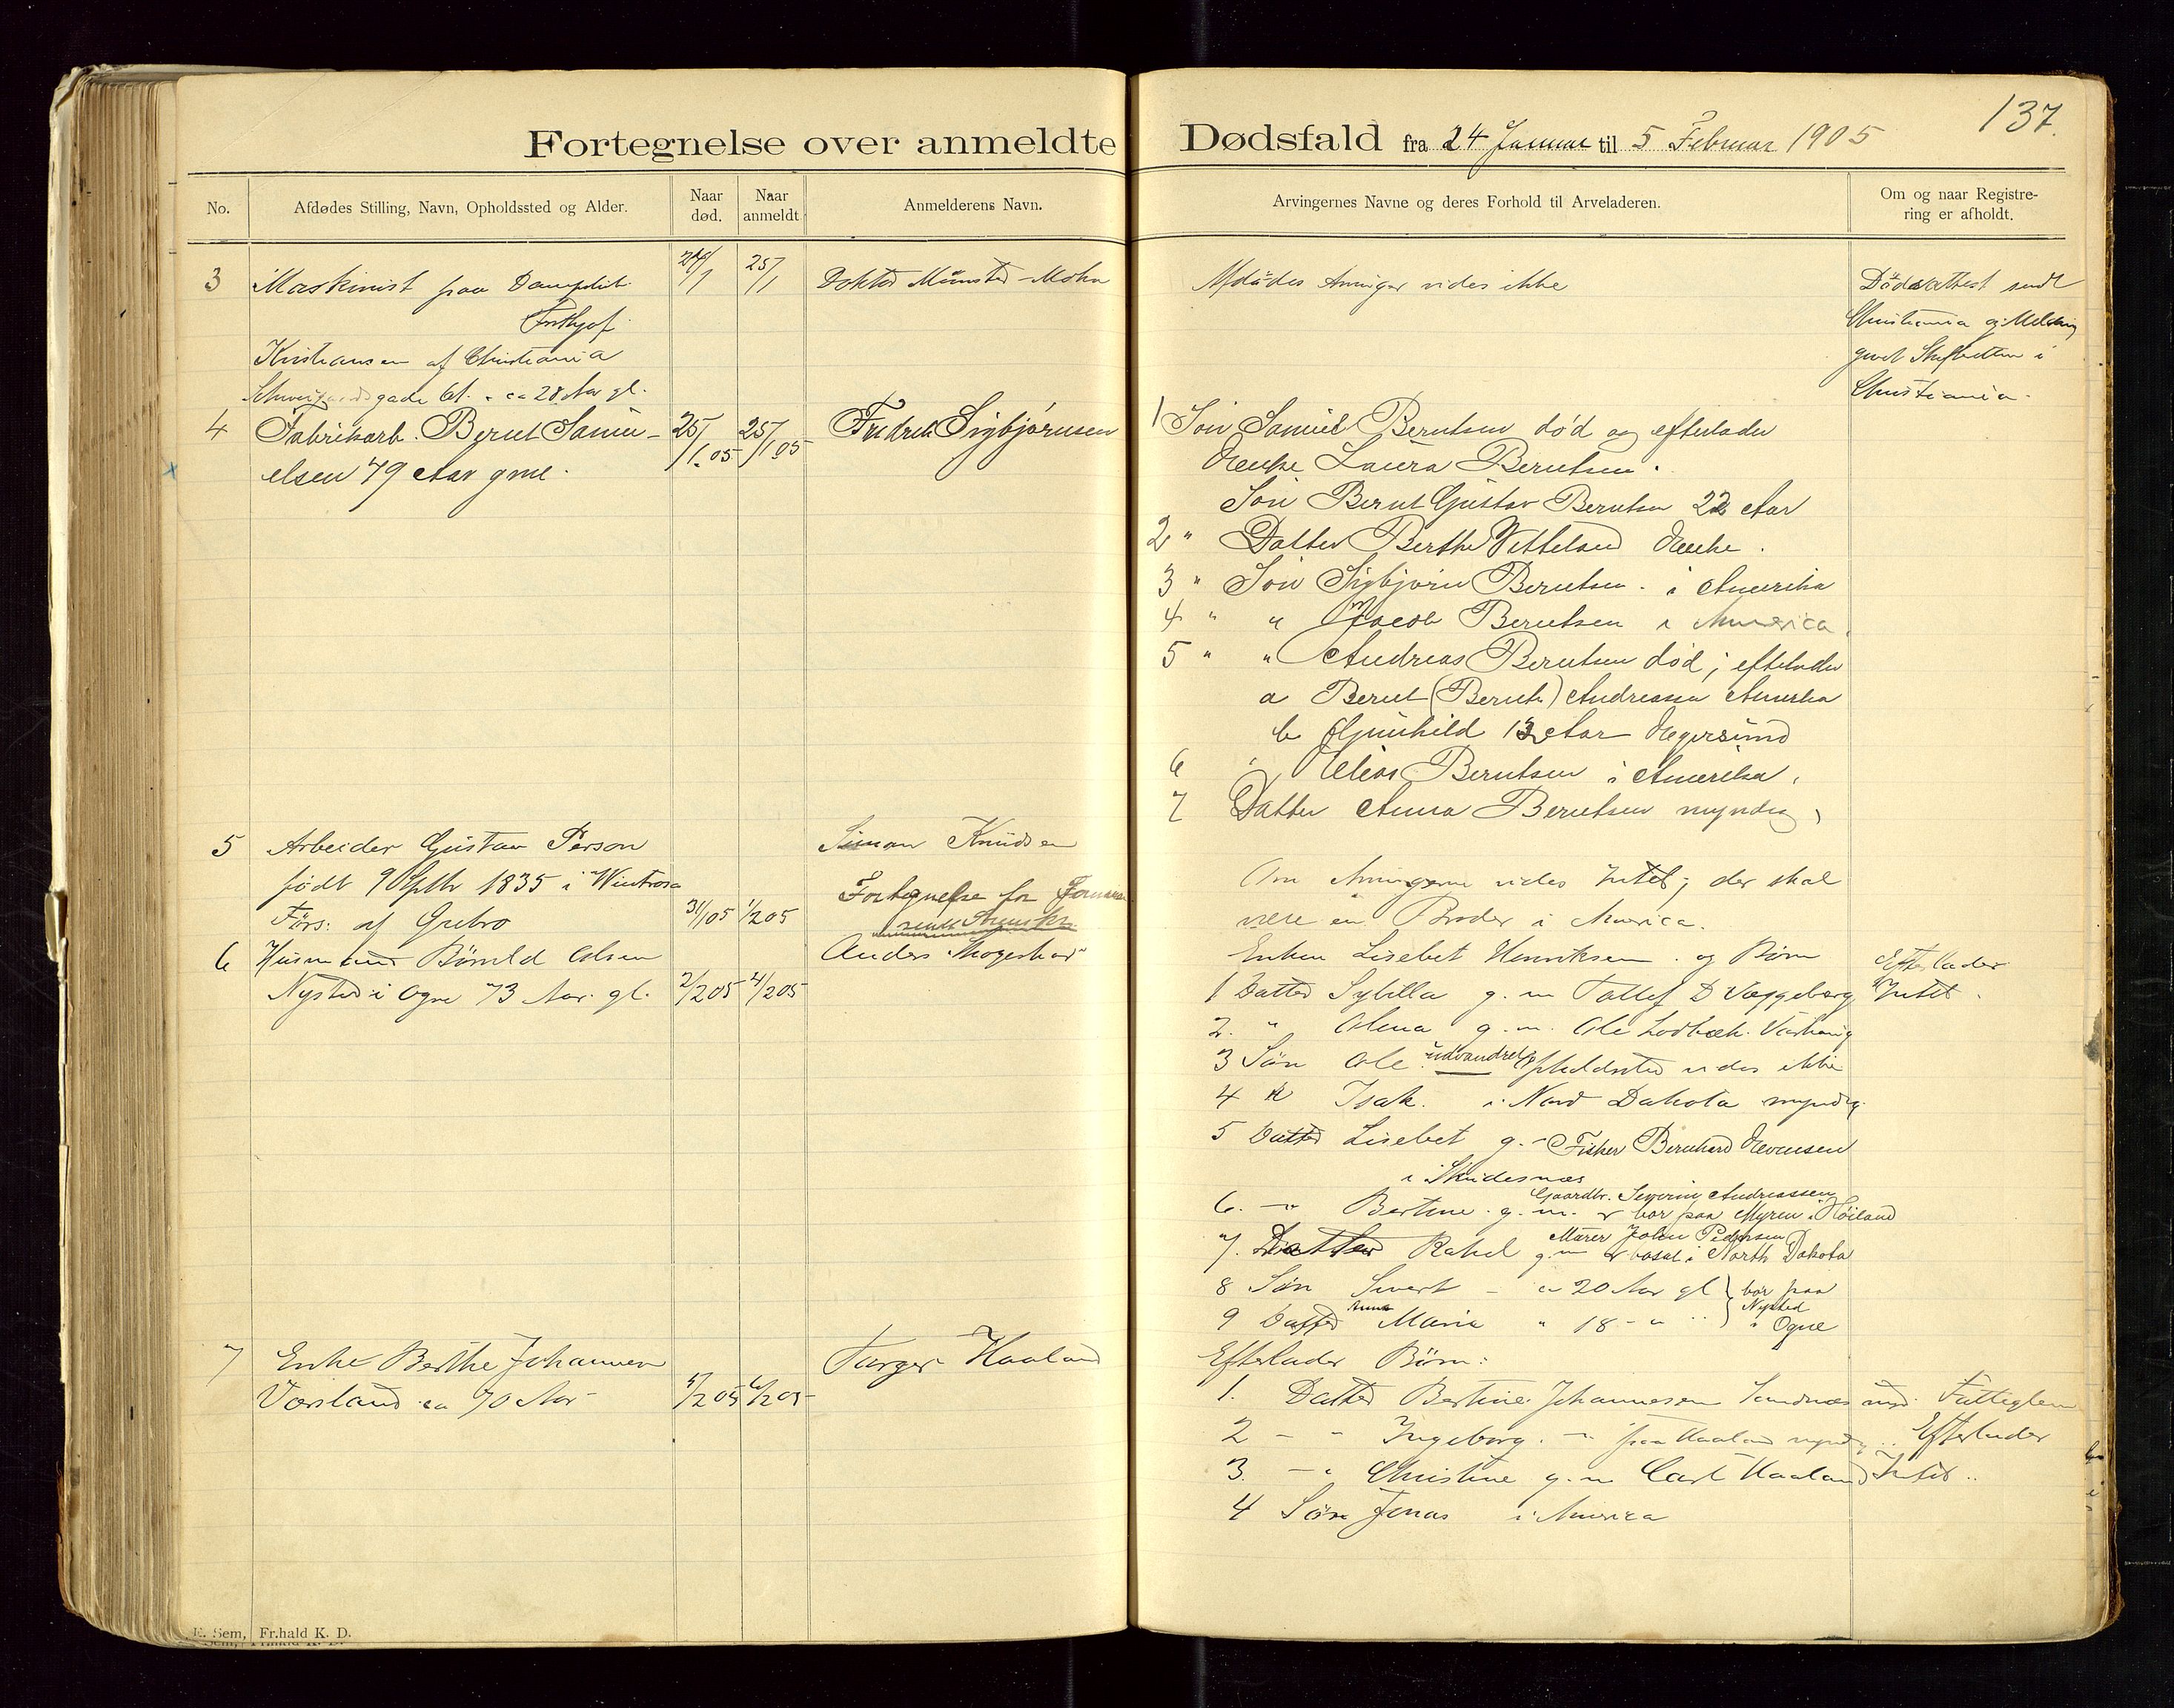 137.
Fortegnelse over anmeldte Dødsfald fra 24 Januar til 5 Februar 1905
No.
Afdødes Stilling, Navn, Opholdssted og Alder.
Naar død.
Naar anmeldt
Anmelderens Navn.
Arvingernes Navne og deres Forhold til Arveladeren.
Om og naar Registrering er afholdt.
3 Maskinist paa Dampskib 24/1 25/1 Doktor Münster-Mohn
Frithjof
Kristiansen af Christiania
gade 61. ca 28 Aar gl.
Afdødes Arvinger vides ikke
Dødsattest sendt
Christiania og Melding
givet Skifteretten i
Christiania.
4 Fabrikarb. Bernt Samu- 25/1.05 25/1 05 Fredrik Sigbjørnsen
elsen 79 Aar gml.
1 Søn Samuel Berntsen død og efterlader
Enke Laura Berntsen.
Søn Bernt Gustav Berntsen 22 Aar
2 " Datter Berthe Vetteland Enke.
3 " Søn Sigbjørn Berntsen. i Amerika
4 " " Jacob Berntsen i America.
5 " " Andreas Berntsen død; efterlader
a Bernt (Bernth) Andreassen Amerika
b Gunhild 13 Aar Egersund
6 " Elias Berntsen i Amerika.
7 Datter Anna Berntsen myndig,
5 Arbeider Gustav Person Simon Knudsen
født 9 Septb 1835 i Wintrosa
Førs: af Ørebro 31/1 05 1/2 05
Fortegnelse for
Om Arvingerne vides Intet; der skal
være en Broder i America.
6 Husmand Börild Olsen Anders
Nysted i Ogne 73 Aar. gl. 2/2 05 4/2 05
Enken Lisebet Henriksen. og Børn
1 Datter Sybilla g. m Tollef D Væggeberg
2. " Olena g. m. Ole Lodbæk. Varhaug
3 Søn Ole. udvandret Opholdsted vides ikke
4 " Isak. i Nord Dakota myndig.
5 Datter Lisebet g. - Fisker Bernhard
i Skudesnæs
6. - " Bertine. g. m. Gaardbr. Severin Andreassen
bor paa Myren i Høiland
7. Datter Rahel g m Murer John Pedersen
bosat i North Dakota
8 Søn Sivert - ca 20 Aar gl } bor paa
9 Datter Anna Maria " 18 - " } Nysted
i Ogne
Efterlader
Intet.
7 Enke Berthe Johannesen Torger Haaland
Varsland ca 70 Aar 5/2 05 6/2 05
Efterlader Børn:
1. Datter Bertine Johannesen Sandnæs
2 - " Ingeborg. - " paa Haaland myndig
3. - " Christine g. m Carl Haaland
4 Søn Jonas i America
Efterlader
Intet..
E. Sem, Fr.hald K. D.